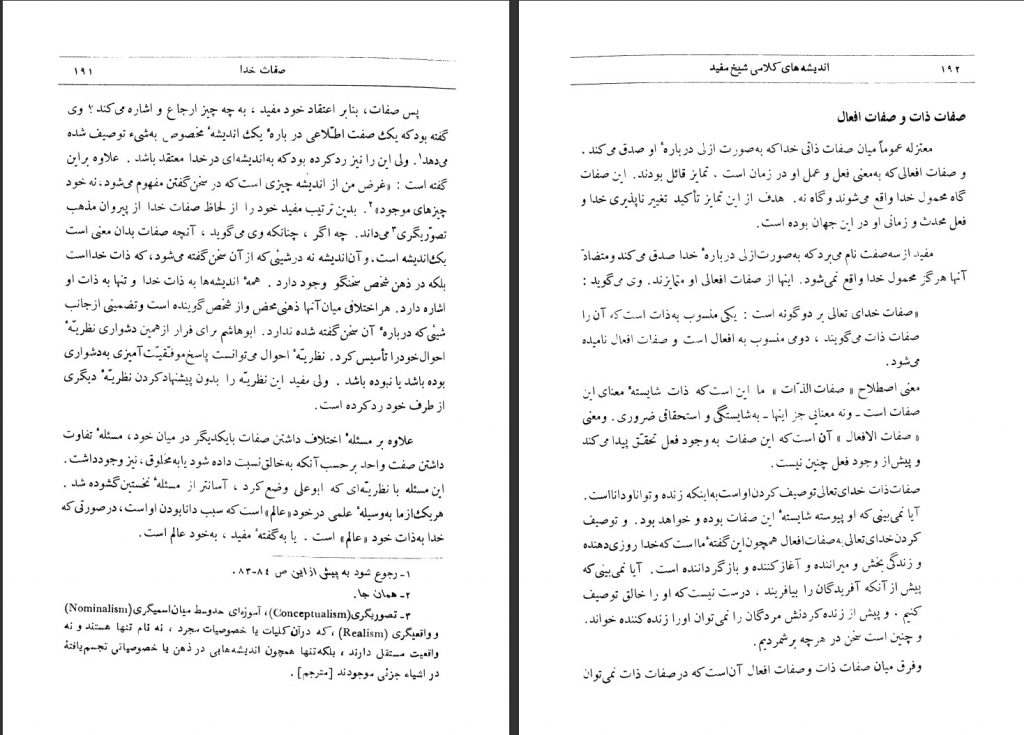 صفات خدا
۱۹۱
پس صفات، بنابر اعتقاد خود مفید ، به چه چیز ارجاع و اشاره می‌کند؟ وی
گفته بود که یک صفت اطّلاعی در بارهٔ یک اندیشهٔ مخصوص به‌شیء توصیف شده
می‌دهد۱. ولی این را نیز رد کرده بود که به‌اندیشه‌ای در خدا معتقد باشد . علاوه براین
گفته است : «غرض من از اندیشه چیزی است که در سخن گفتن مفهوم می‌شود، نه خود
چیزهای موجود»۲. بدین ترتیب مفید خود را از لحاظ صفات خدا از پیروان مذهب
تصوّریگری۳ می‌داند. چه اگر ، چنانکه وی می‌گوید ، آنچه صفات بدان معنی است
یک‌اندیشه است، و آن‌اندیشه نه در شیئی که از آن سخن گفته می‌شود، که ذات خدا است
بلکه در ذهن شخص سخنگو وجود دارد . همهٔ اندیشه‌ها به ذات خدا و تنها به ذات او
اشاره دارد. هر اختلافی میان آنها ذهنی محض و از شخص گوینده است و تضمینی از جانب
شیئی که دربارهٔ آن سخن گفته شده ندارد. ابوهاشم برای فرار از همین دشواری نظریـّهٔ
احوال خود را تأسیس کرد. نظریـّهٔ احوال می‌توانست پاسخ موفـّقیـّت‌آمیزی به‌دشواری
بوده باشد یا نبوده باشد . ولی مفید این نظریـّه را بدون پیشنهاد کردن نظریـّهٔ دیگری
از طرف خود رد کرده است.
علاوه بر مسئلهٔ اختلاف داشتن صفات با یکدیگر در میان خود، مسئلهٔ تفاوت
داشتن صفت واحد بر حسب آنکه به خالق نسبت داده شود یا به مخلوق، نیز وجود داشت.
این مسئله با نظریـّه‌ای که ابوعلی وضع کرد ، آسانتر از مسئلهٔ نخستین گشوده شد .
هر یک از ما به‌وسیلهٔ علمی در خود «عالم» است که سبب دانا بودن او است، در صورتی که
خدا به‌ذات خود «عالم» است . یا به گفتهٔ مفید ، به‌خود عالم است.
۱ـ رجوع شود به پیش از این ص ۸۴-۸۳.
۲ـ همان جا.
۳ـ تصوریگری(Conceptualism)، آموزه‌ای حدوسط میان اسمیگری(Nominalism)
و واقعیگری (Realism) ، که در آن کلیات یا خصوصیات مجرد ، نه نام تنها هستند و نه
واقعیت مستقل دارند ، بلکه تنها همچون اندیشه‌هایی در ذهن یا خصوصیاتی تجسم یافتهٔ
در اشیاء جزئی موجودند [مترجم] .
۱۹۲
اندیشه‌های کلامی شیخ مفید
صفات ذات و صفات افعال
معتزله عموماً میان صفات ذاتی خدا که به صورت ازلی دربارهٔ او صدق می‌کند .
و صفات افعالی که به‌معنی فعل و عمل او در زمان است . تمایز قائل بودند. این صفات
گاه محمول خدا واقع می‌شوند و گاه نه. هدف از این تمایز تأکید تغییر ناپذیری خدا و
فعل محدث و زمانی او در این جهان بوده است.
مفید از سه صفت نام می‌برد که به صورت ازلی دربارهٔ خدا صدق می‌کند و متضادّ
آنها هرگز محمول خدا واقع نمی‌شود. اینها از صفات افعالی او متمایزند. وی می‌گوید :
«صفات خدای تعالی بر دو گونه است : یکی منسوب به ذات است که آن را
صفات ذات می‌گویند ، دومی منسوب به افعال است و صفات افعال نامیده
می‌شود.
معنی اصطلاح «صفات الذّات» ما این است که ذات شایستهٔ معنای این
صفات است ـ و نه معنایی جز اینها ـ به‌شایستگی و استحقاقی ضروری. و معنی
«صفات الافعال» آن است که این صفات به وجود فعل تحقـّق پیدا می‌کند
و پیش از وجود فعل چنین نیست.
صفات ذات خدای تعالی توصیف کردن او است به اینکه زنده و توانا و دانا است.
آیا نمی‌بینی که او پیوسته شایستهٔ این صفات بوده و خواهد بود. و توصیف
کردن خدای تعالی به صفات افعال همچون این گفتهٔ ما است که خدا روزی دهنده
و زندگی بخش و میراننده و آغاز کننده و باز گرداننده است . آیا نمی‌بینی که
پیش از آنکه آفریدگان را بیافریند ، درست نیست که او را خالق توصیف
کنیم . و پیش از زنده کردنش مردگان را نمی‌توان او را زنده کننده خواند.
و چنین است سخن در هر چه بر شمردیم.
و فرق میان صفات ذات و صفات افعال آن است که در صفات ذات نمی‌توان